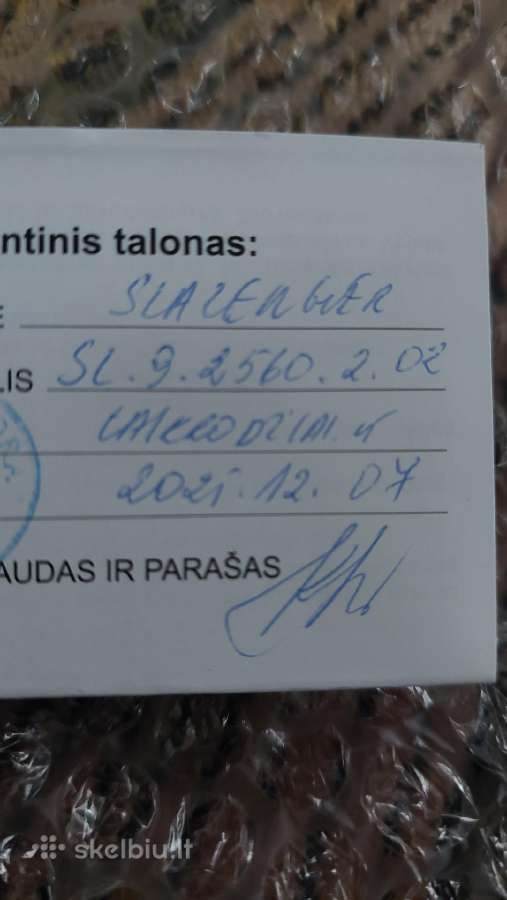 ntinis talonas:
E SLAZENGER
LIS SL.9.2560.2.02
LAIKRODZIAI.lt
2021.12.07
AUDAS IR PARAŠAS
skelbiu.lt